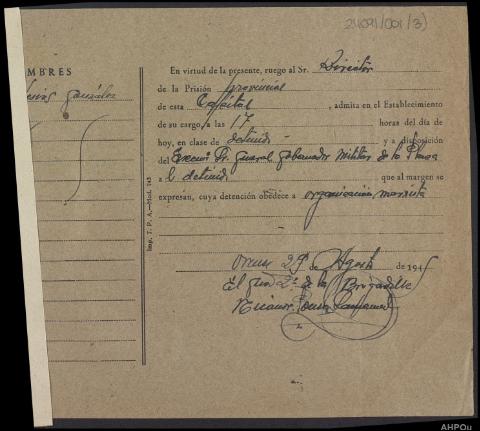 24091/001/3)
MBRES
González
En virtud de la presente, ruego al Sr. Director
de la Prisión provincial
de esta Capital, admita en el Establecimiento
de su cargo, a las 17 horas del día de
hoy, en clase de detenido - y a disposición
del Excmo Sr. General Gobernador Militar de la Plaza
a l detenido que al margen se
expresan, cuya detención obedece a organización marxista
Imp. T. P. A.—Mod. 145
de Agosto de 194
El Jefe 2º de la Brigadilla
AHPOu